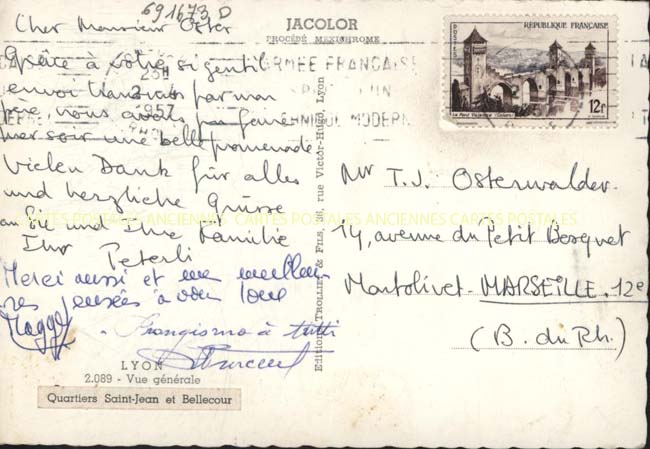 691673 D
Cher Monsieur Oster
Grâce à votre si gentil
envoi par mon
père nous avons pu faire
hier soir une belle promenade
Vielen Dank für alles
und herzliche Grüsse
an Sie und Ihre Familie
Ihr Peterli
Merci aussi et mes meilleu-
res pensées à vous tous
Maggy
à tutti
LYON
2.089 - Vue générale
Quartiers Saint-Jean et Bellecour
JACOLOR
PROCÉDÉ MEXICHROME
ARMÉE FRANÇAISE
1957
TECHNIQUE MODERNE
Editions TROLLIET & FILS, 36, rue Victor-Hugo, Lyon
POSTES
RÉPUBLIQUE FRANÇAISE
12f
Le Pont Valentré (Cahors)
Mr T. J. Osterwalder
14, avenue du Petit Bosquet
Montolivet - MARSEILLE. 12e
(B. du Rh.)
CARTES POSTALES ANCIENNES CARTES POSTALES ANCIENNES CARTES POSTALES